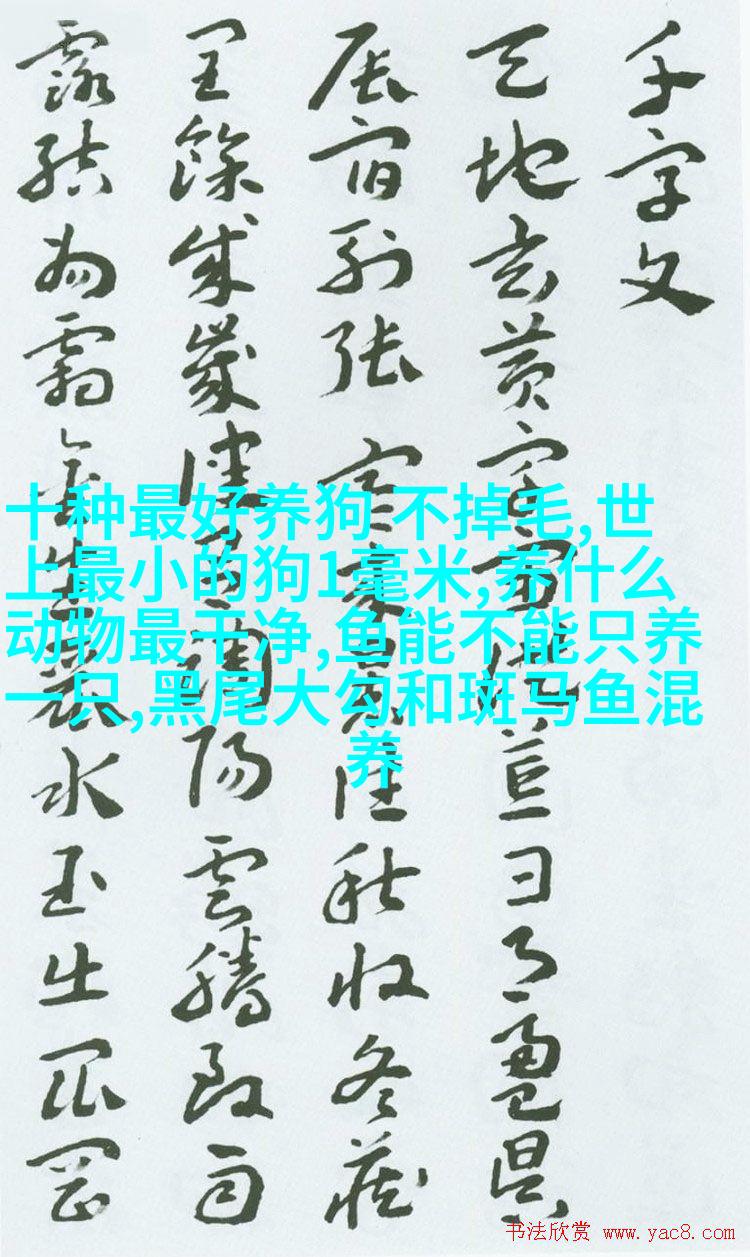 千字文
天地玄黃宇宙洪荒日月盈昃
辰宿列張寒來暑往秋收冬藏
閏餘成歲律呂調陽雲騰致雨
露結為霜金生麗水玉出崑岡
十种最好养狗 不掉毛,世
上最小的狗1毫米,养什么
动物最干净,鱼能不能只养
一只,黑尾大勾和斑马鱼混
养
书法欣赏 www.yac8.com